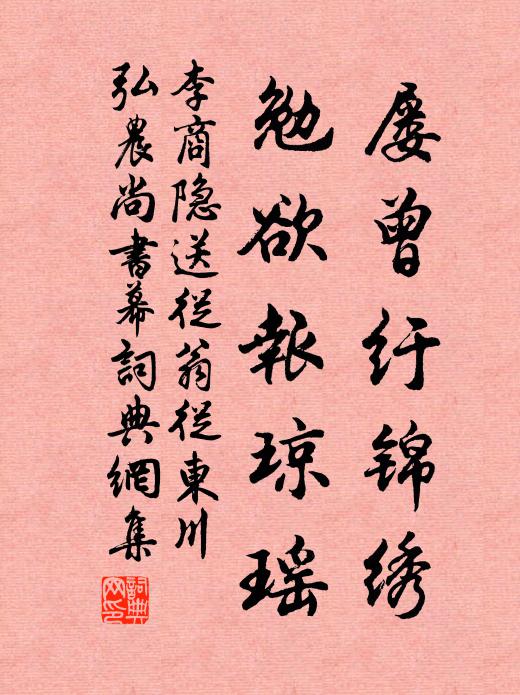 屡曾纡锦绣
勉欲报琼瑶
李商隐送从翁从东川
弘農尚書幕詞典網集
詞典网印